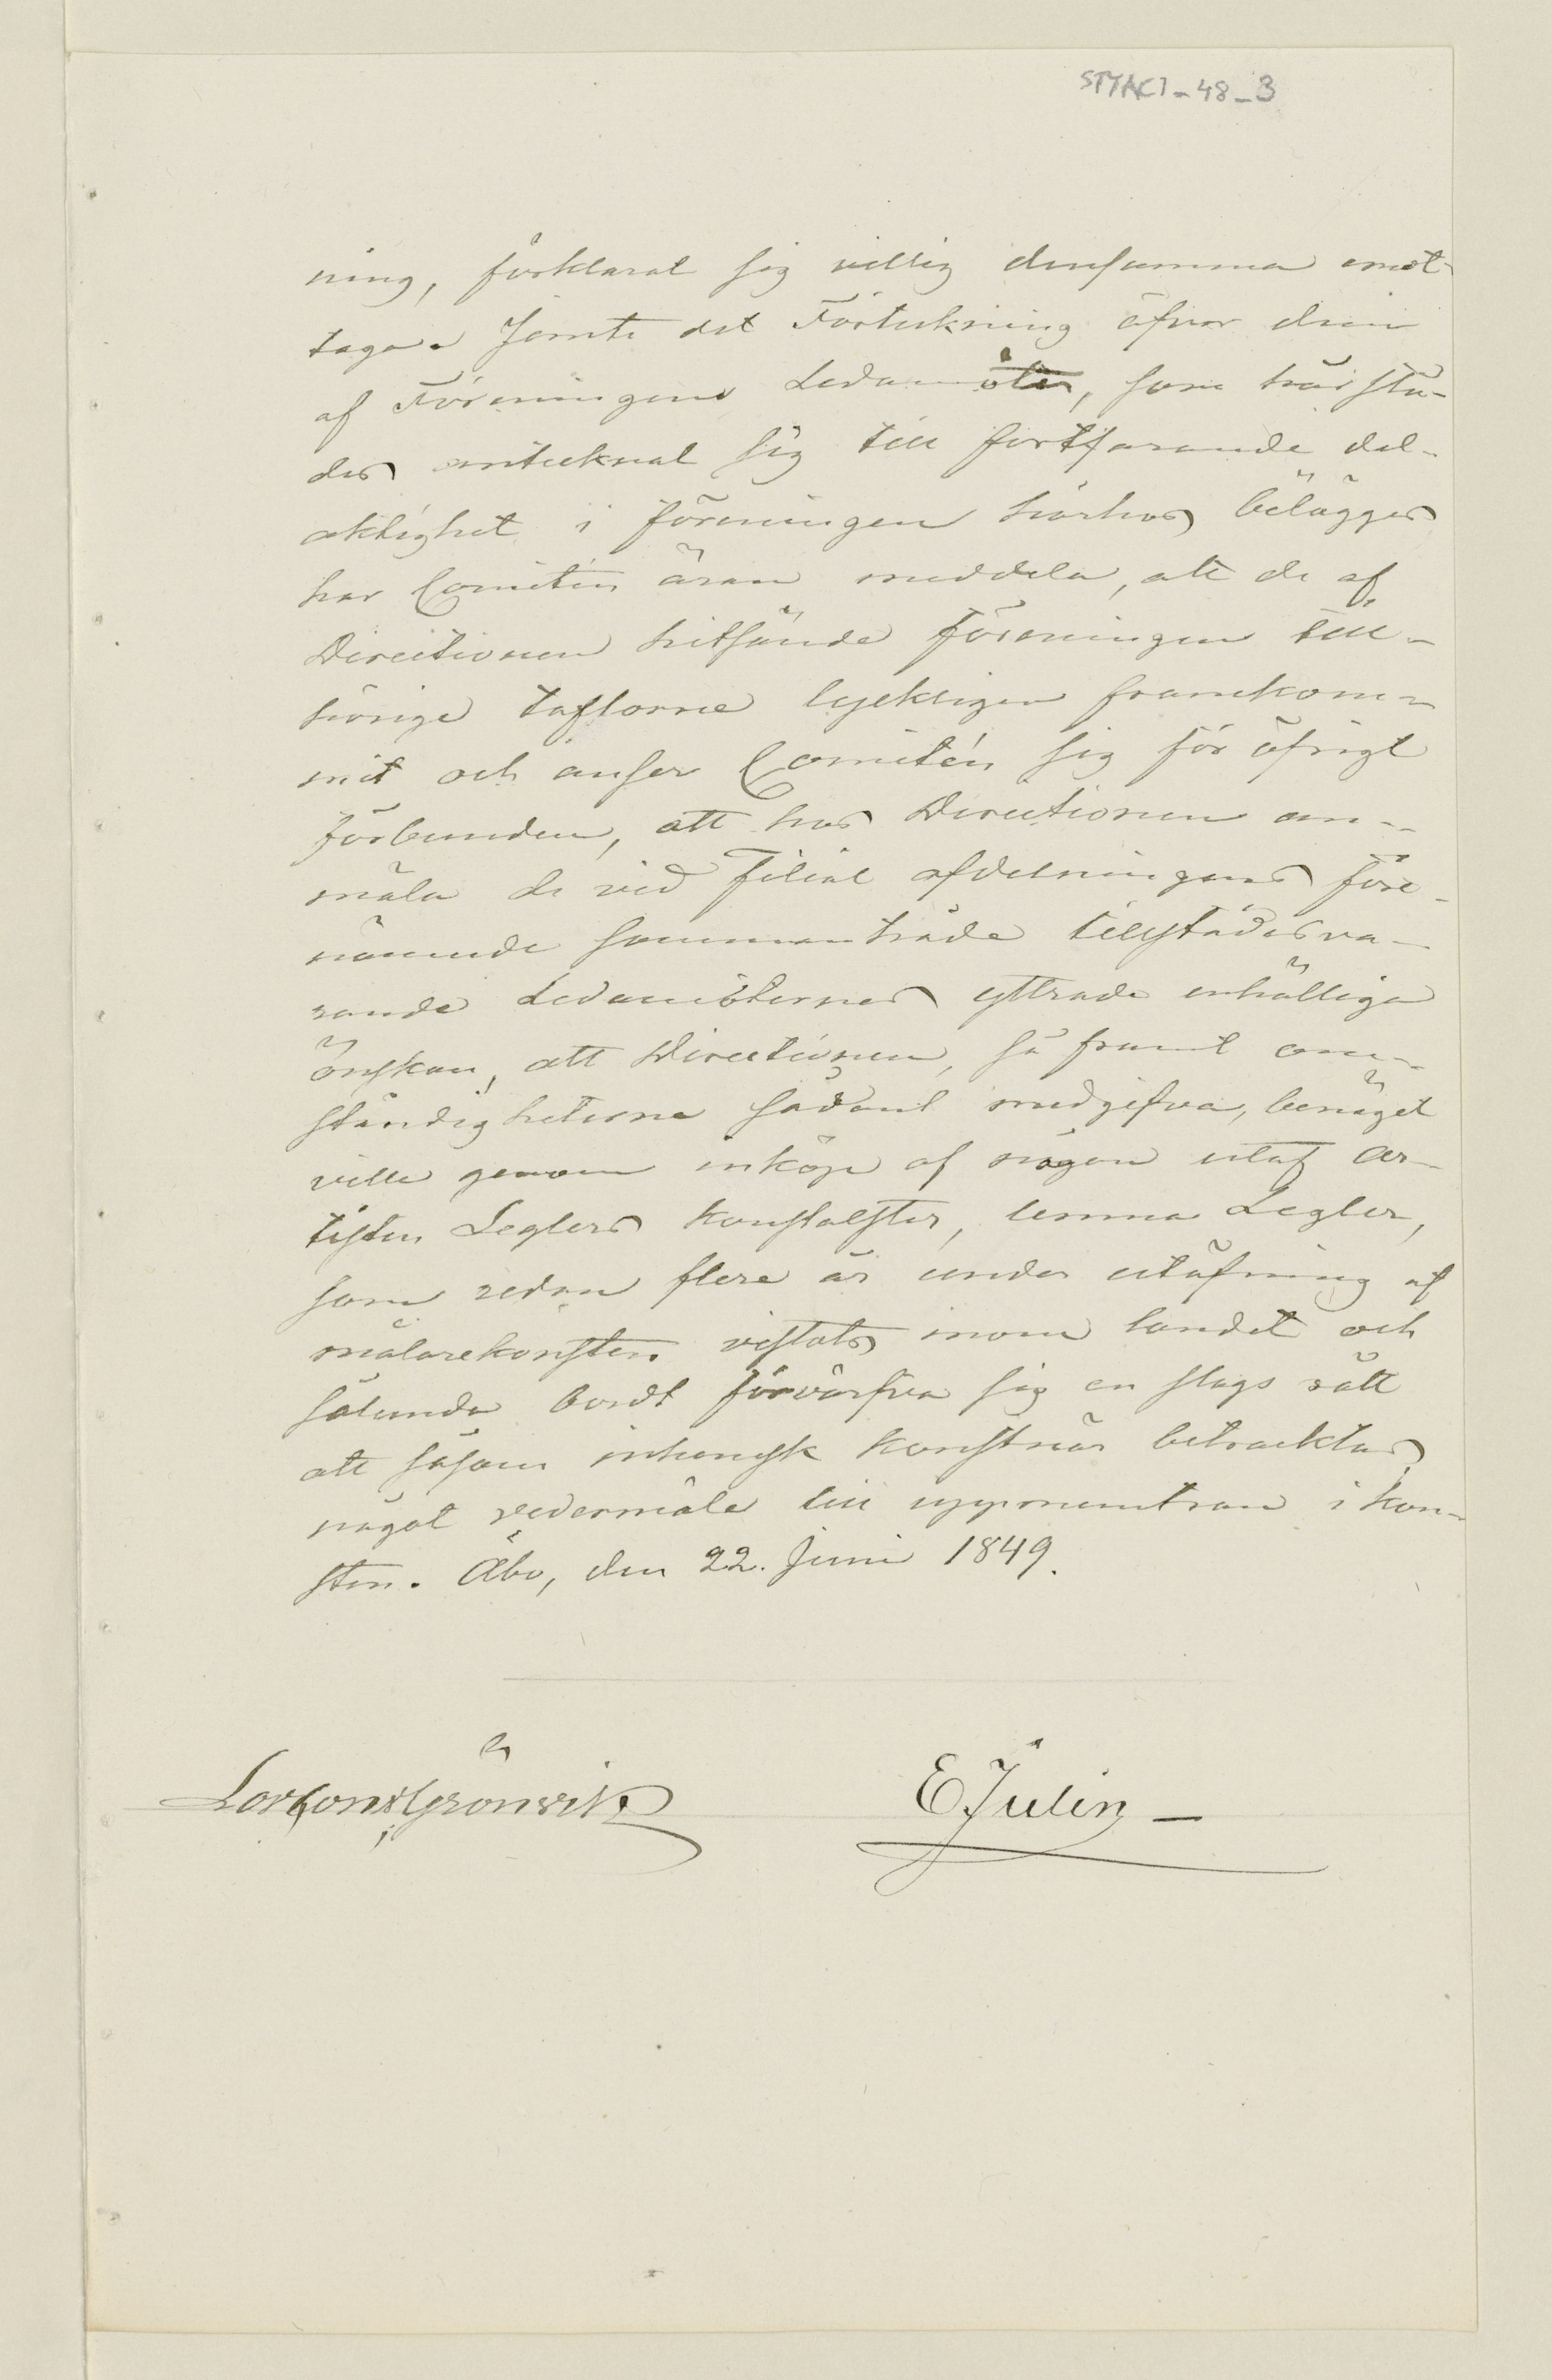 STYACI-48-3
ning, förklarat sig villig densamma emot-
taga. Jemte det Förtekning öfver dem
af Föreningens Ledamöter, som härstä-
des antecknat sig till fortfarande del-
aktighet i föreningen härhos bilägges
har Comitén äran meddela, att de af
Directionen hitsände Föreningen till-
hörige taflorne lyckligen framkom-
mit och anser Comitén sig för öfrigt
förbunden, att hos Directionen an-
mäla de vid Filial afdelningens före-
nämnde sammanträde tillstädesva-
rande Ledamöternes yttrade enhälliga
önskan, att Directionen, så framt om-
ständigheterne sådant medgifva, benäget
ville genom inköp af någon utaf Ar-
tisten Leglers konstalster, lemna Legler,
som redan flere år under utöfning af
målarekonsten vistats inom landet och
sålunda bordt förvärfva sig en slags rätt
att såsom inhemsk konstnär betracktas,
något vedermäle till uppmuntran i kon-
sten. Åbo, den 22. Juni 1849.
Grönvik E Julin